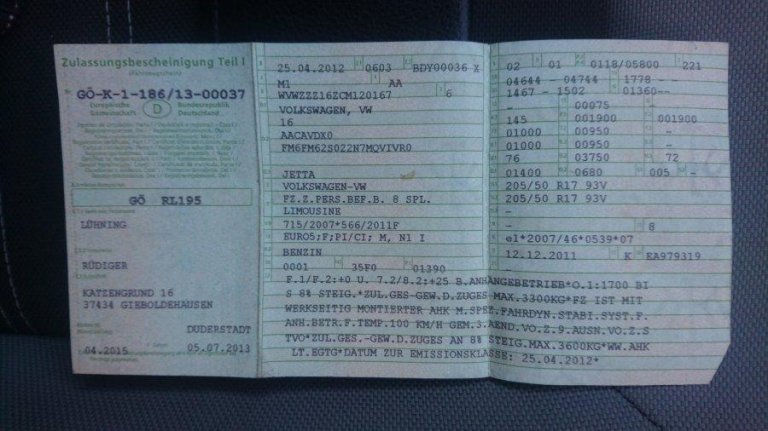 Zulassungsbescheinigung Teil I
(Fahrzeugschein)
GÖ-K-1-186/13-00037
Europäische Gemeinschaft
D
Bundesrepublik Deutschland
GÖ RL195
LÜHNING
RÜDIGER
KATZENGRUND 16
37434 GIEBOLDEHAUSEN
DUDERSTADT
04.2015
05.07.2013
25.04.2012 0603 BDY00036 X
M1 AA
WVWZZZ16ZCM120167 6
VOLKSWAGEN, VW
16
AACAVDX0
FM6FM62S022N7MQVIVR0
JETTA
VOLKSWAGEN-VW
FZ.Z.PERS.BEF.B. 8 SPL.
LIMOUSINE
715/2007*566/2011F
EURO5;F;PI/CI; M, N1 I
BENZIN
0001 35F0 01390
02 01 0118/05800 221
04644 - 04744 1778 - -
1467 - 1502 01360--
- 00075 -
145 001900 001900
01000 00950 -
01000 00950 -
76 03750 72
01400 0680 005 -
205/50 R17 93V
205/50 R17 93V
-
- 8
e1*2007/46*0539*07
12.12.2011 K EA979319
F.1/F.2:+0 U. 7.2/8.2:+25 B.ANHÄNGEBETRIEB*O.1:1700 BI
S 8% STEIG.*ZUL.GES-GEW.D.ZUGES MAX.3300KG*FZ IST MIT
WERKSEITIG MONTIERTER AHK M.SPEZ.FAHRDYN.STABI.SYST.F.
ANH.BETR.F.TEMP.100 KM/H GEM.3.AEND.VO.Z.9.AUSN.VO.Z.S
TVO*ZUL.GES.-GEW.D.ZUGES AN 8% STEIG.MAX.3600KG*WW.AHK
LT.EGTG*DATUM ZUR EMISSIONSKLASSE: 25.04.2012*